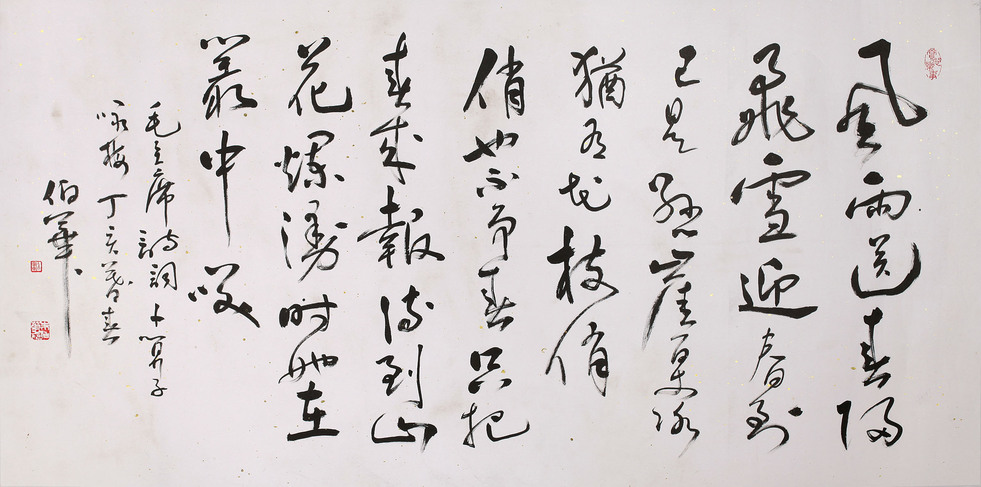 風雨送春歸
飛雪迎春到
已是懸崖百丈冰
猶有花枝俏
俏也不爭春只把
春來報待到山
花爛漫時她在
叢中咲
毛主席詩詞卜算子
咏梅丁亥暮春
伯華